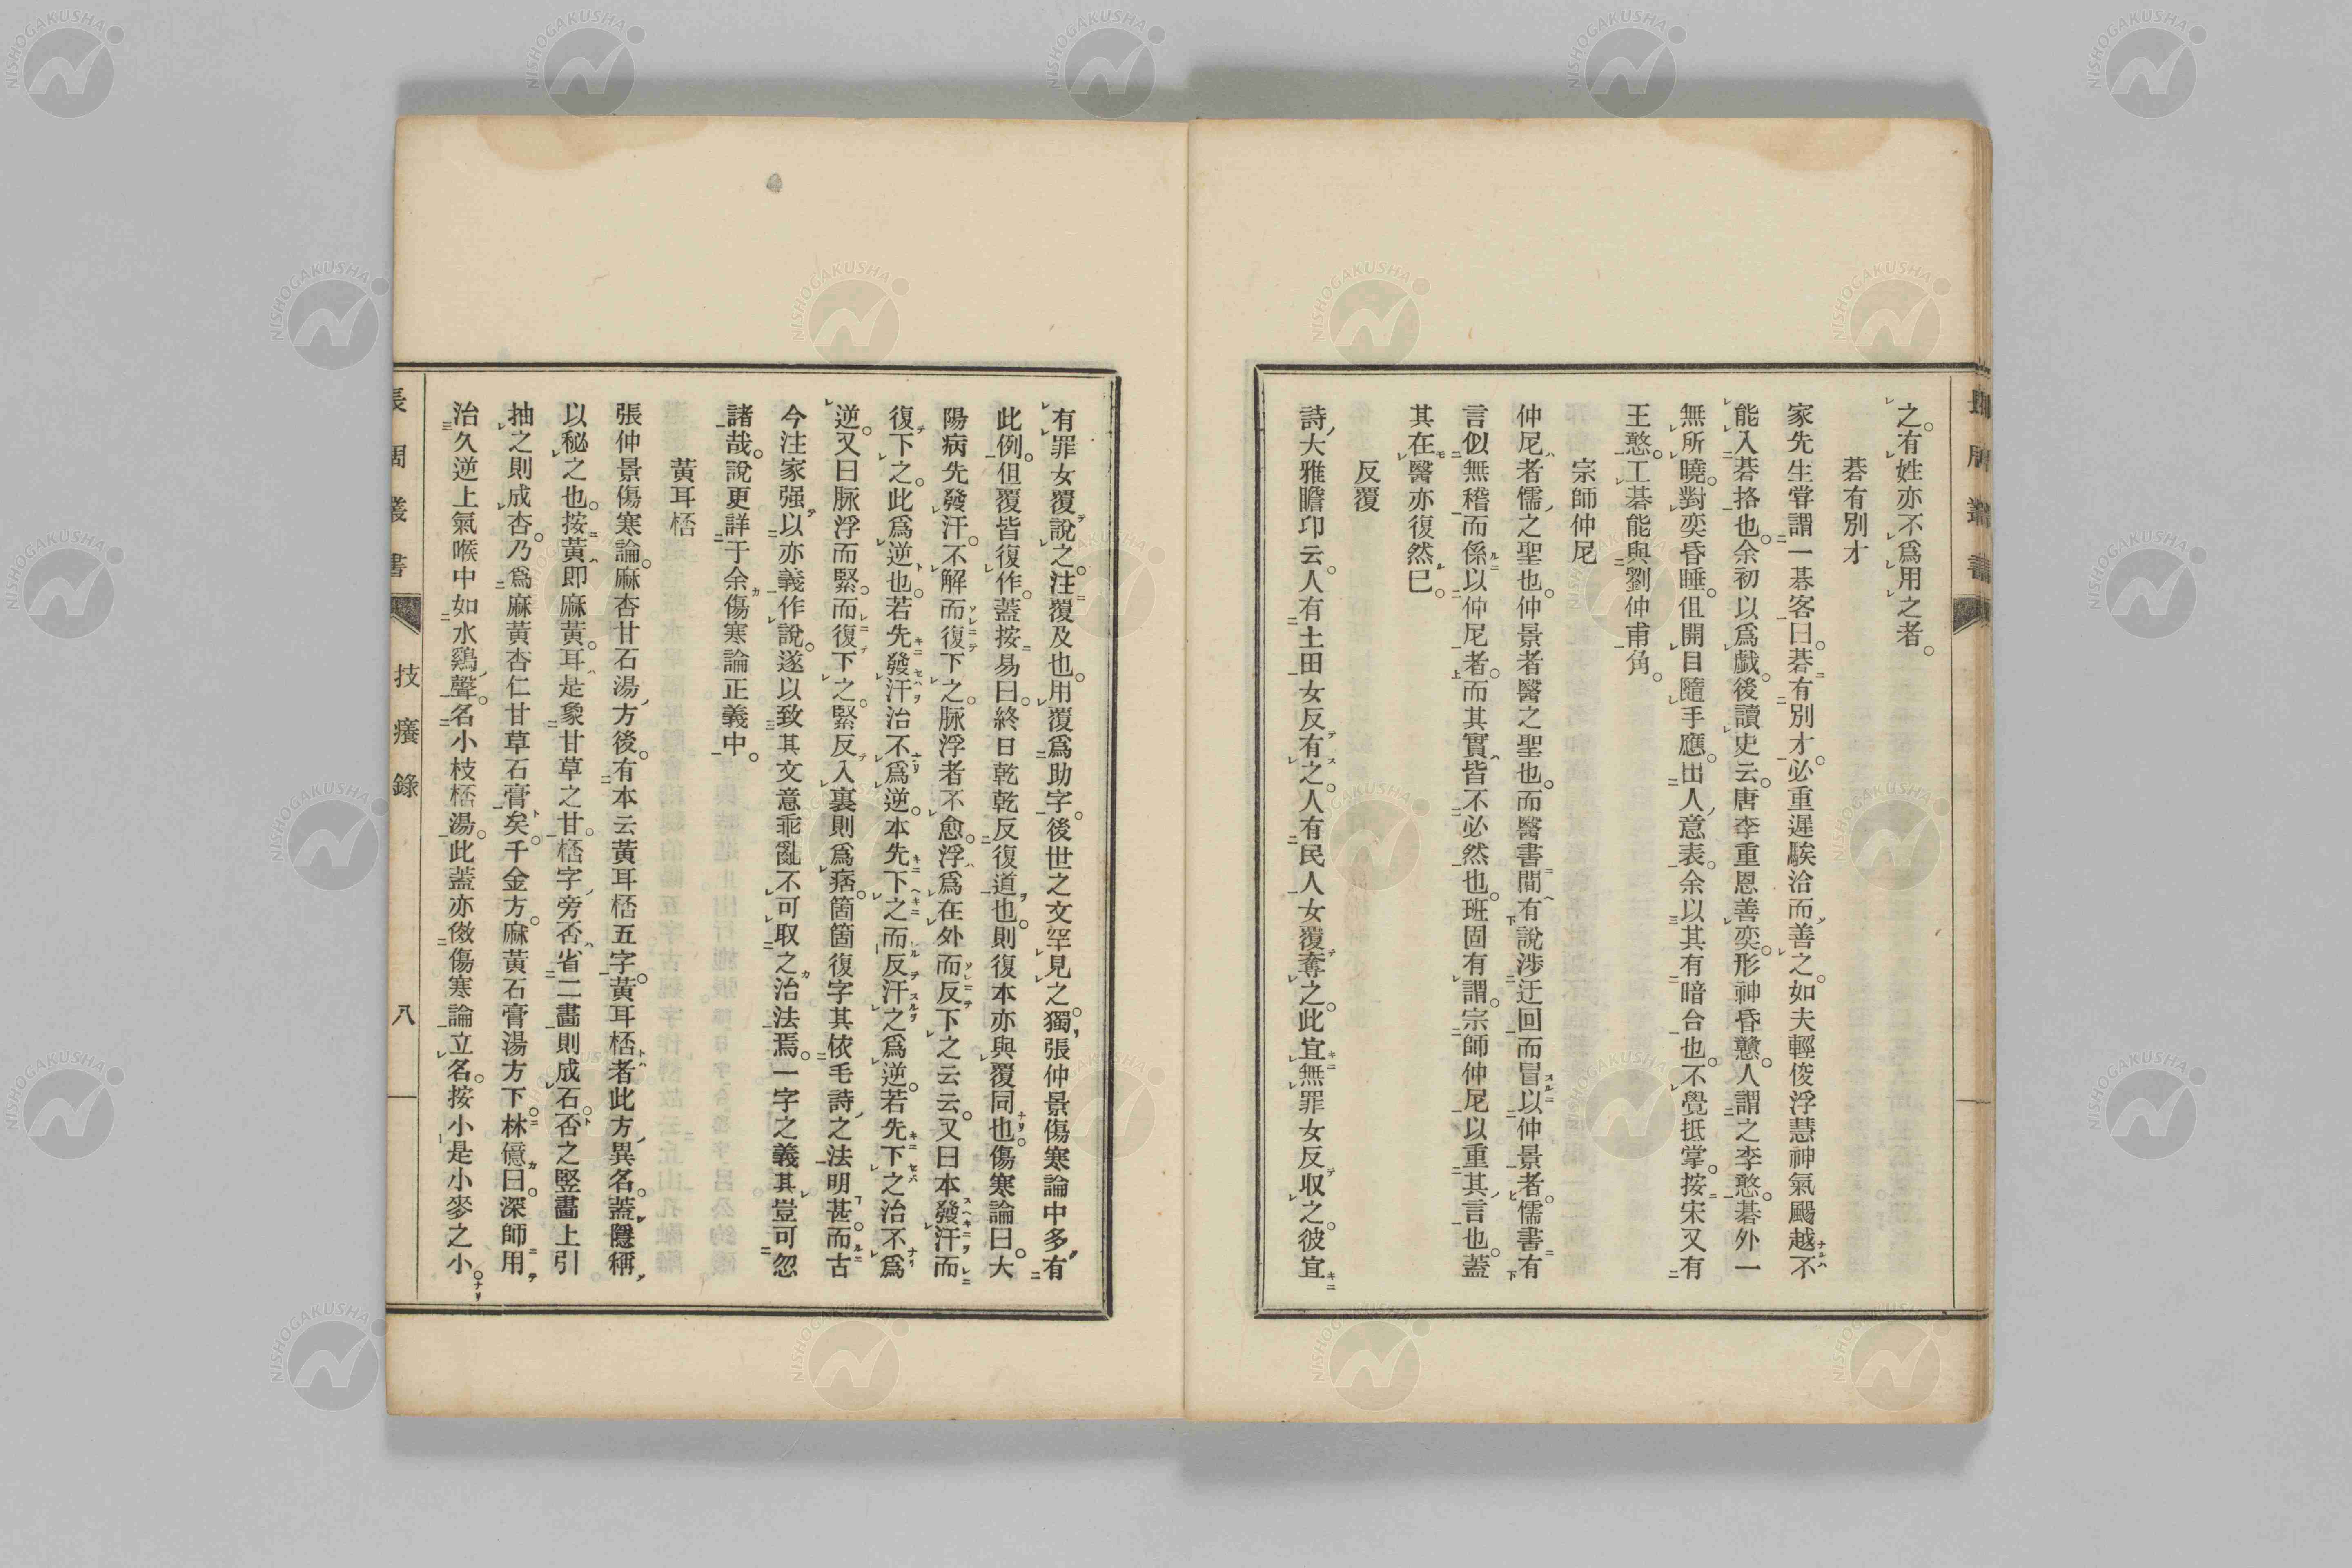 之。有姓亦不爲用之者。
碁有別才
家先生甞謂一碁客曰。碁有別才。必重遲騃洽而善之。如夫輕俊浮慧神氣颺越不
能入碁挌也。余初以爲戲。後讀史云。唐李重恩善奕。形神昏戇。人謂之李憨。碁外一
無所曉。對奕昏睡。伹開目隨手應。出人意表。余以其有暗合也。不覺抵掌。按宋又有
王憨。工碁能與劉仲甫角。
宗師仲尼
仲尼者儒之聖也。仲景者醫之聖也。而醫書間有說涉迂回而冒以仲景者。儒書有
言似無稽而係以仲尼者。而其實皆不必然也。班固有謂。宗師仲尼以重其言也。蓋
其在醫亦復然已。
反覆
詩大雅瞻卬云。人有土田女反有之。人有民人女覆奪之。此宜無罪女反取之。彼宜
有罪女覆說之。注覆及也。用覆爲助字。後世之文罕見之。獨張仲景傷寒論中多有
此例。但覆皆復作。蓋按易曰。終日乾乾反復道也。則復本亦與覆同也。傷寒論曰。大
陽病先發汗。不解而復下之。脉浮者不愈。浮爲在外而反下之云云。又曰本發汗而
復下之。此爲逆也。若先發汗治不爲逆。本先下之而反汗之爲逆。若先下之治不爲
逆。又曰脉浮而緊。而復下之。緊反入裏則爲痞。箇箇復字其依毛詩之法明甚。而古
今注家强以亦義作說。遂以致其文意乖亂不可取之治法焉。一字之義其豈可忽
諸哉。說更詳于余傷寒論正義中。
黃耳桮
張仲景傷寒論。麻杏甘石湯方後。有本云黃耳桮五字。黃耳桮者此方異名。蓋隱稱
以秘之也。按黃即麻黃。耳是象甘草之甘。桮字旁否省二畵則成石。否之竪畵上引
抽之則成杏。乃爲麻黃杏仁甘草石膏矣。千金方。麻黃石膏湯方下。林億曰。深師用
治久逆上氣喉中如水鷄聲。名小枝桮湯。此蓋亦傚傷寒論立名。按小是小麥之小。
技癢錄
八